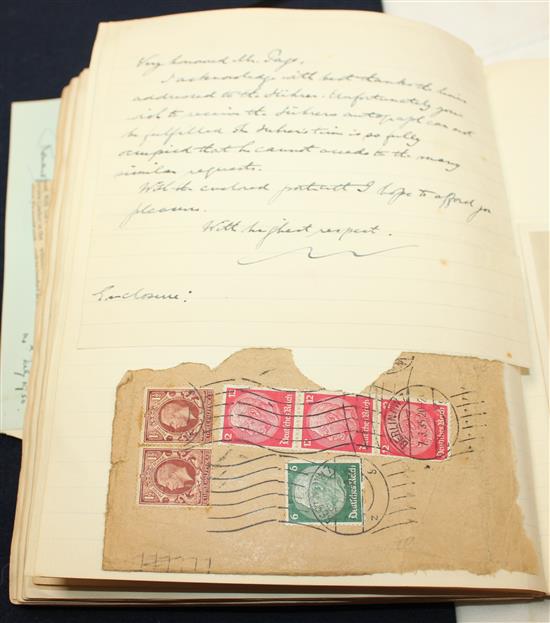 Very honoured Mr. Page,
I acknowledge with best thanks the lines
addressed to the Führer. Unfortunately your
wish to receive the Führers autograph can not
be fulfilled. The Führers time is so fully
occupied that he cannot accede to the many
similar requests.
With the enclosed portrait I hope to afford you
pleasure.
With highest respect.
Enclosure:
12 12
Deutsches Reich
Deutsches Reich
12
Deutsches Reich
12
6
Deutsches Reich
6